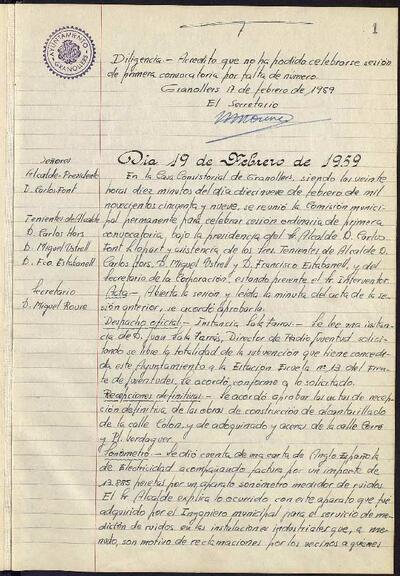 1
AYUNTAMIENTO
GRANOLLERS
Diligencia.- Acredito que no ha podido celebrarse sesión
de primera convocatoria por falta de número.
Granollers 17 de febrero de 1959
El Secretario
Señores
Alcalde-Presidente
D. Carlos Font
Tenientes de Alcalde
D. Carlos Hors
D. Miguel Ustrell
D. Fco. Estabanell
Secretario
D. Miguel Roure
Día 19 de Febrero de 1.959
En la Casa Consistorial de Granollers, siendo las veinte
horas diez minutos del día diecinueve de febrero de mil
novecientos cincuenta y nueve, se reunió la Comisión munici-
pal permanente para celebrar sesión ordinaria de primera
convocatoria, bajo la presidencia del Sr. Alcalde D. Carlos
Font Llopart y asistencia de los Tres Tenientes de Alcalde D.
Carlos Hors, D. Miguel Ustrell y D. Francisco Estabanell, y del
Secretario de la Corporación, estando presente el Sr. Interventor.
Acta.- Abierta la sesión y leída la minuta del acta de la se-
sión anterior, se acordó aprobarla.
Despacho oficial.- Instancia Sala Parrás.- Se lee una instan-
cia de D. Juan Sala Parrás, Director de Radio Juventud, solici-
tando se libre la totalidad de la subvención que tiene concedi-
da este Ayuntamiento a la Estación Escuela nº 13 del Fren-
te de Juventudes, se acordó conforme a lo solicitado.
Recepciones definitivas.- Se acordó aprobar las actas de recep-
ción definitiva de las obras de construcción de alcantarillado
de la calle Colón, y de adoquinado y aceras de la calle Corró
y Pl. Verdaguer.
Sonómetro.- Se dió cuenta de una carta de Anglo Española
de Electricidad acompañando factura por un importe de
13.885 pesetas por un aparato sonómetro medidor de ruidos.
El Sr. Alcalde explica lo ocurrido con este aparato que fué
adquirido por el Ingeniero municipal para el servicio de me-
dición de ruidos en las instalaciones industriales que, a me-
nudo, son motivo de reclamaciones por los vecinos a quienes